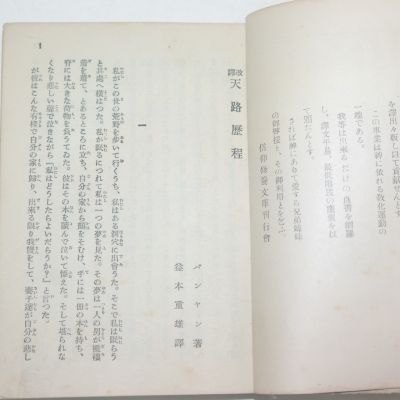 を譯出々版して貢献せんとす
この事業は神に依れる敎化運動の
一端である。
我等は出來るだけの良書を網羅
し、譯文平易、最低廉價を以
て頒たんとす。
されば神にありて愛する兄弟姉妹
の御聲援と、その御利用とをぞふ。
信仰修養文庫刊行會
改譯 天路歷程
バンヤン著
益本重雄譯
一
私がこの世の荒野を歩いて行くうち、とはある洞穴に出會うた。そこで私は眠らう
と其處へ橫はつた。私が眠るにつれて私は一つの夢を見た。その夢は一人の男が襤褸
を着て、とあるところに立ち、自分の家から顏をそむけ、手には一冊の本を持ち、
脊には大きな荷物を負うてゐた。彼はその本を讀んで泣いて憾えた。そして堪られな
くなり悲しい聲で泣きながら『私はどうしたらよいだらうか？』と言つた。
が彼はこんな有樣で自分の家に歸り、出來る限り我慢をして、妻子達が自分の悲し
1